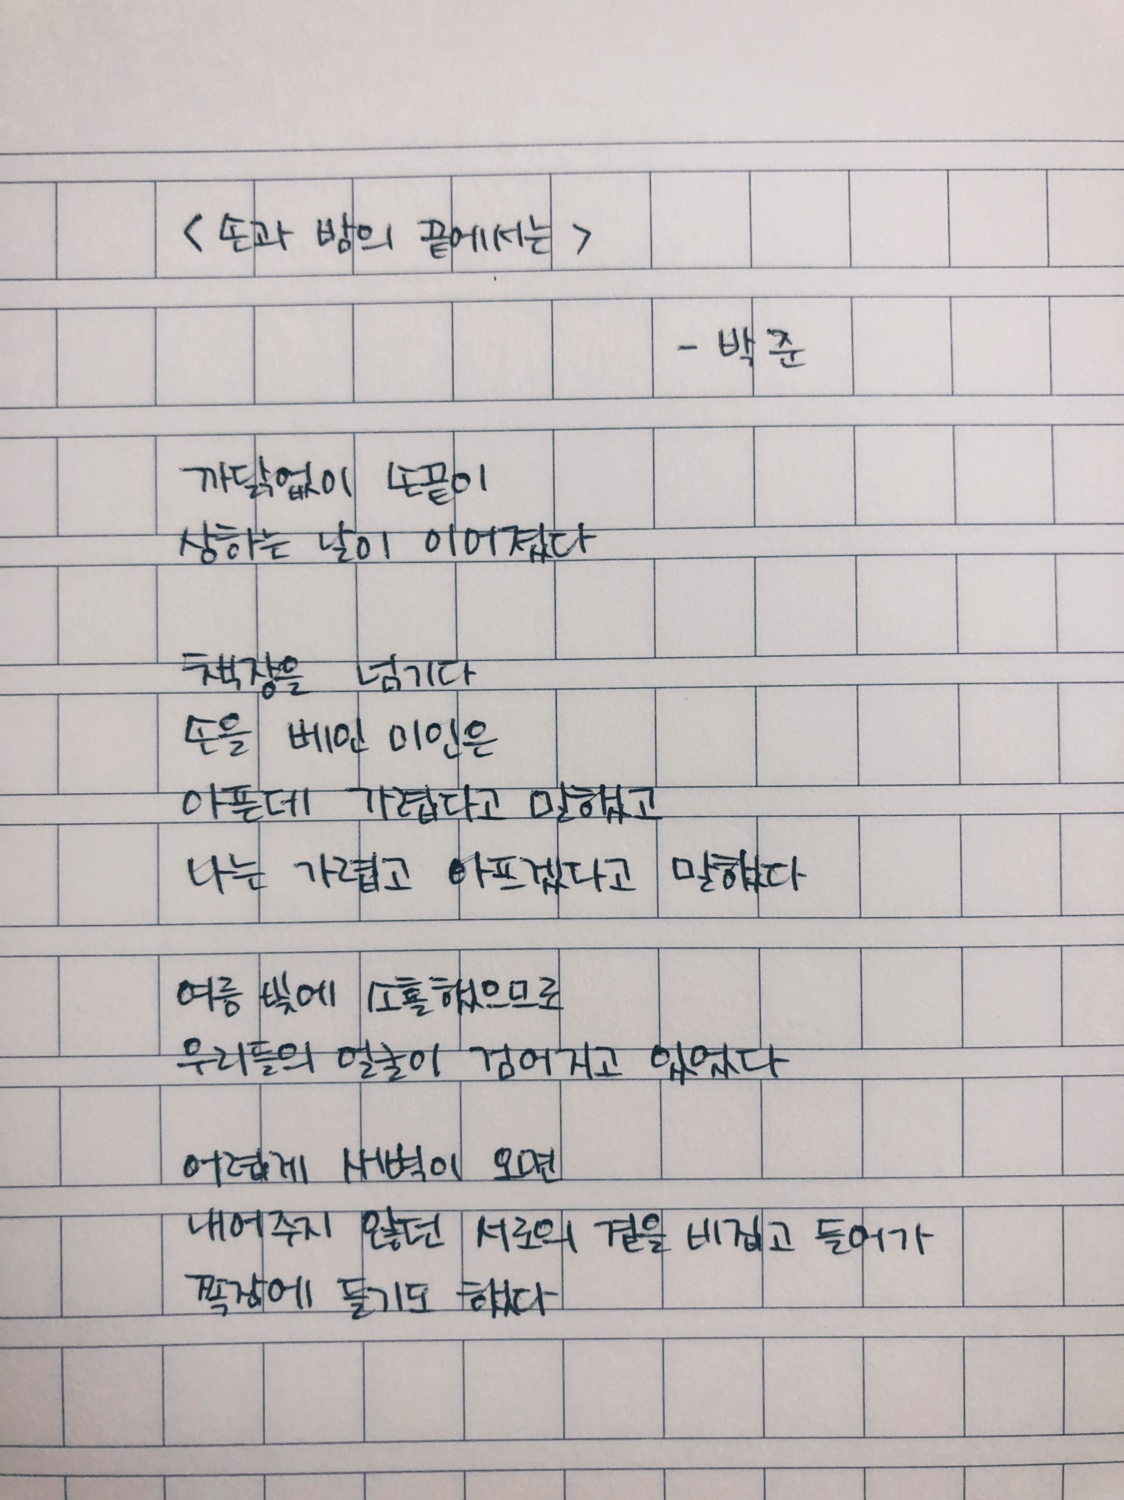 <손과 밤의 끝에서는>
- 박준
까닭없이 손끝이
상하는 날이 이어졌다
책장을 넘기다
손을 베인 미인은
아픈데 가렵다고 말했고
나는 가렵고 아프겠다고 말했다
여름 빛에 소홀했으므로
우리들의 얼굴이 검어지고 있었다
어렵게 새벽이 오면
내어주지 않던 서로의 곁을 비집고 들어가
쪽잠에 들기도 했다